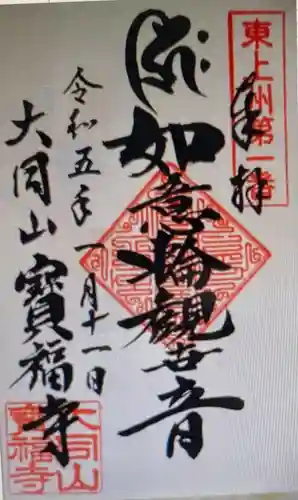 東上州第一番
奉拝
如意輪觀世音
令和五年一月十一日
大同山
寳福寺
大同山
寳福寺